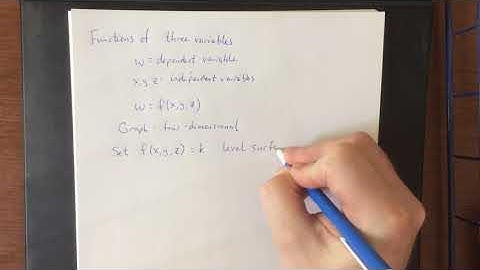 Functions of three variables
w = dependent variable
x,y,z = independent variables
w = f(x,y,z)
Graph - four-dimensional
Set f(x,y,z) = k level surf